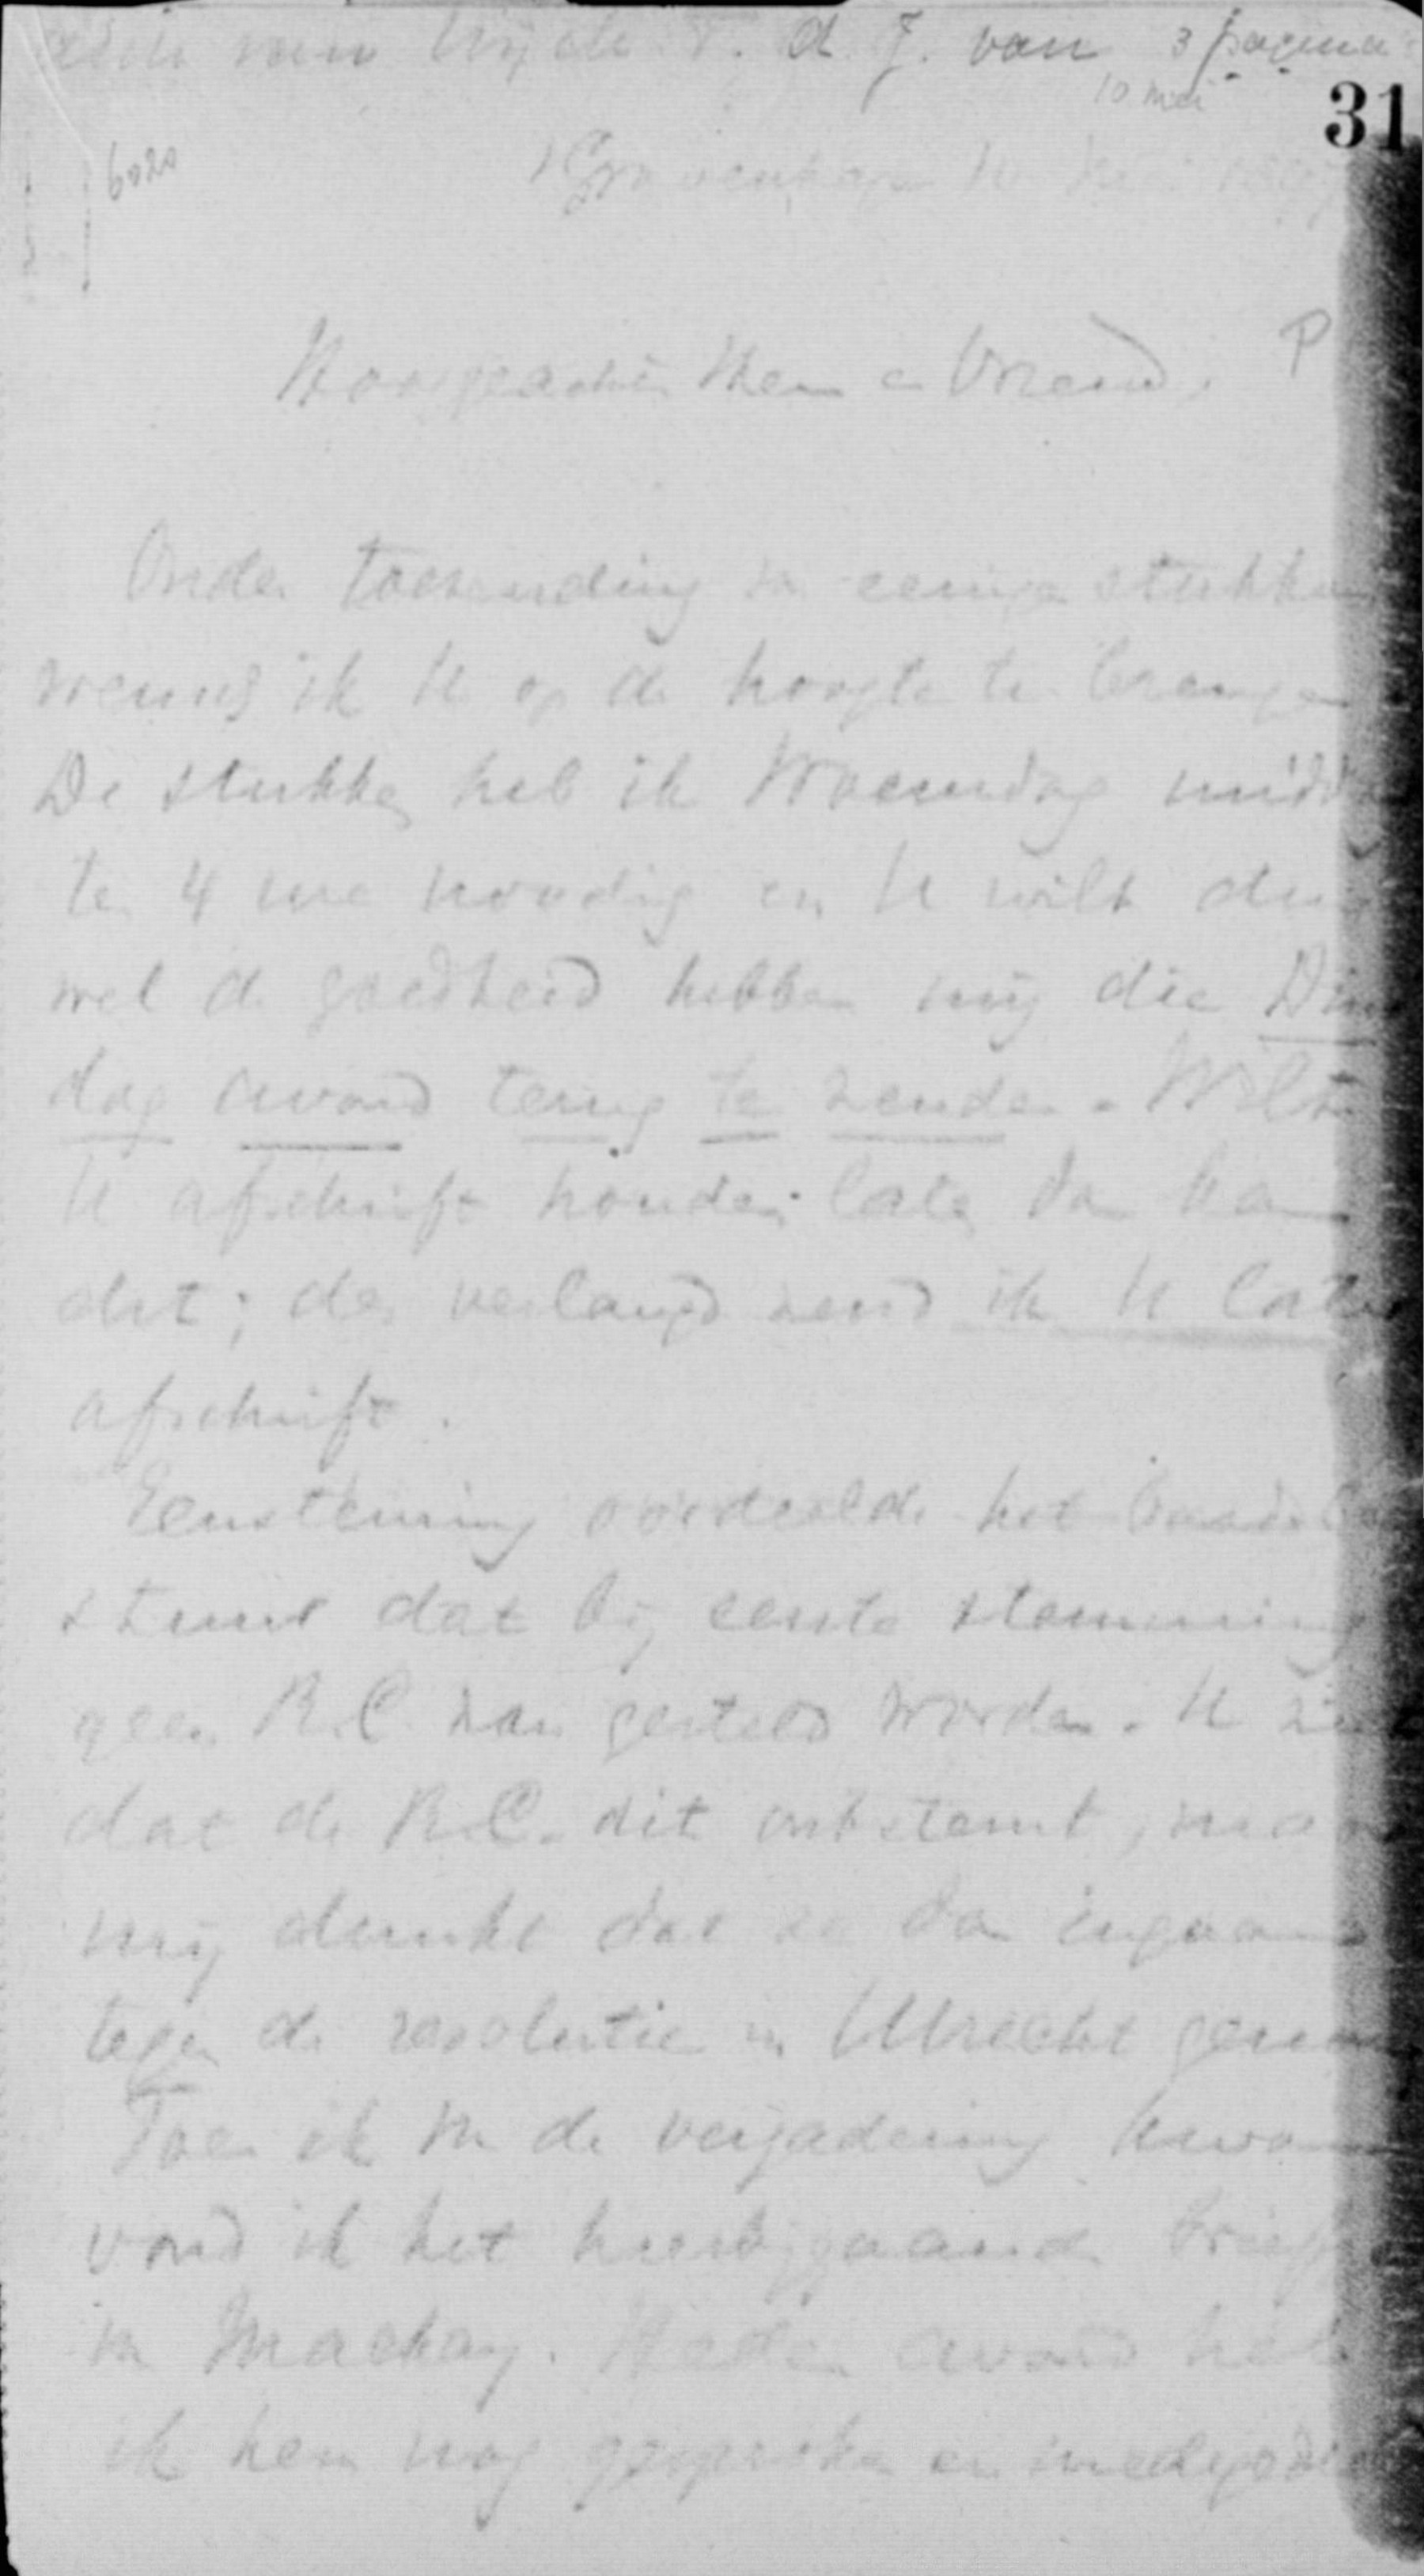 van d. J. van 3 pagina
10 mei
31
6020
'sGravenhage
Hooggeachte Heer en Vriend, P
Onder toezending van eenige stukken
wensch ik U op de hoogte te brengen
De stukken heb ik Woensdag midda
te 4 ure noodig en U wilt dus
wel de goedheid hebben mij die Dins
dag avond terug te zenden. Wilt
U afschrift houden laten dan kan
dit; des verlangd zend ik U later
afschrift.
Eenstemmig oordeelde het
stuur dat bij eerste stemming
geen R.C. kan gesteld worden. U ziet
dat de R.C. dit ontstemt, maar
mij dunkt dat ze dan ingaan
tegen de resolutie in Utrecht genom
Toen ik in de vergadering kwam
vond ik het hierbijgaande briefje
van Mackay. Heden avond heb
ik hem nog gesproken en medeged